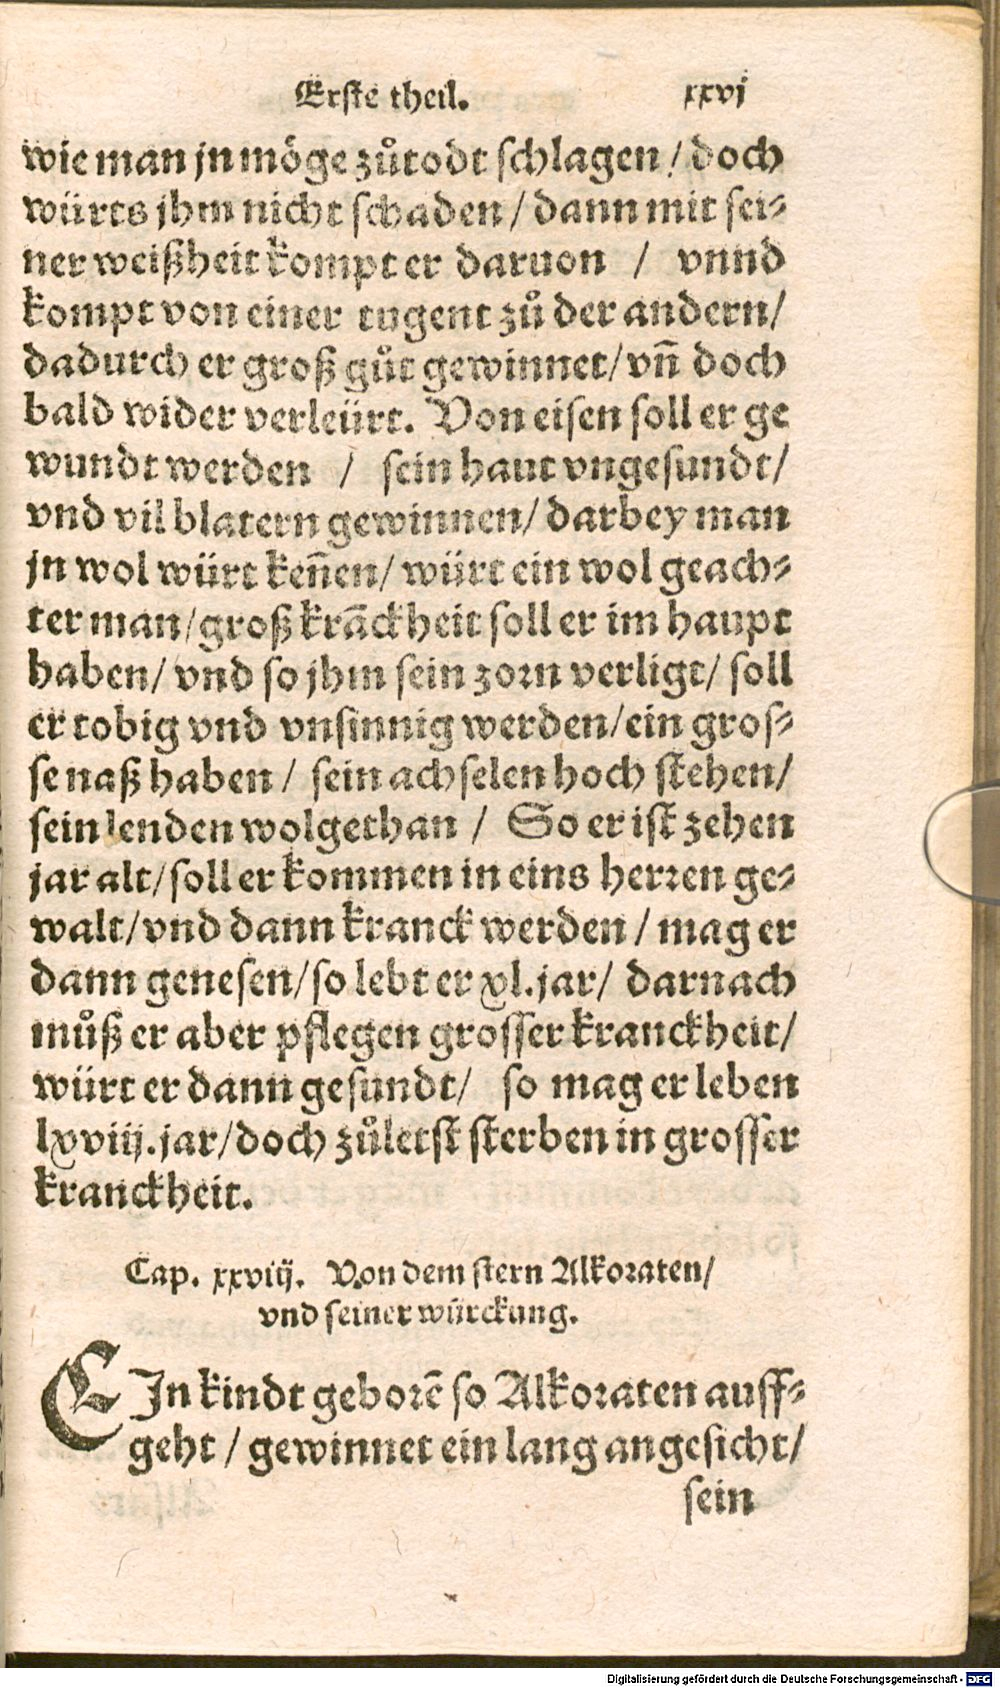 Erste theil. xxvj
wie man jn möge zůtodt schlagen / doch
würts jhm nicht schaden / dann mit sei-
ner weißheit kompt er daruon / vnnd
kompt von einer tugent zů der andern /
dadurch er groß gůt gewinnet / vñ doch
bald wider verleürt. Von eisen soll er ge
wundt werden / sein haut vngesundt /
vnd vil blatern gewinnen / darbey man
jn wol würt keñen / würt ein wol geach-
ter man / groß krāckheit soll er im haupt
haben / vnd so jhm sein zorn verligt / soll
er tobig vnd vnsinnig werden / ein gros-
se naß haben / sein achselen hoch stehen /
sein lenden wolgethan / So er ist zehen
jar alt / soll er kommen in eins herren ge-
walt / vnd dann kranck werden / mag er
dann genesen / so lebt er xl. jar / darnach
můß er aber pflegen grosser kranckheit /
würt er dann gesundt / so mag er leben
lxviij. jar / doch zůletst sterben in grosser
kranckheit.
Cap. xxviij. Von dem stern Alkoraten /
vnd seiner würckung.
EIn kindt geborē so Alkoraten auff-
geht / gewinnet ein lang angesicht /
sein
Digitalisierung gefördert durch die Deutsche Forschungsgemeinschaft - DFG